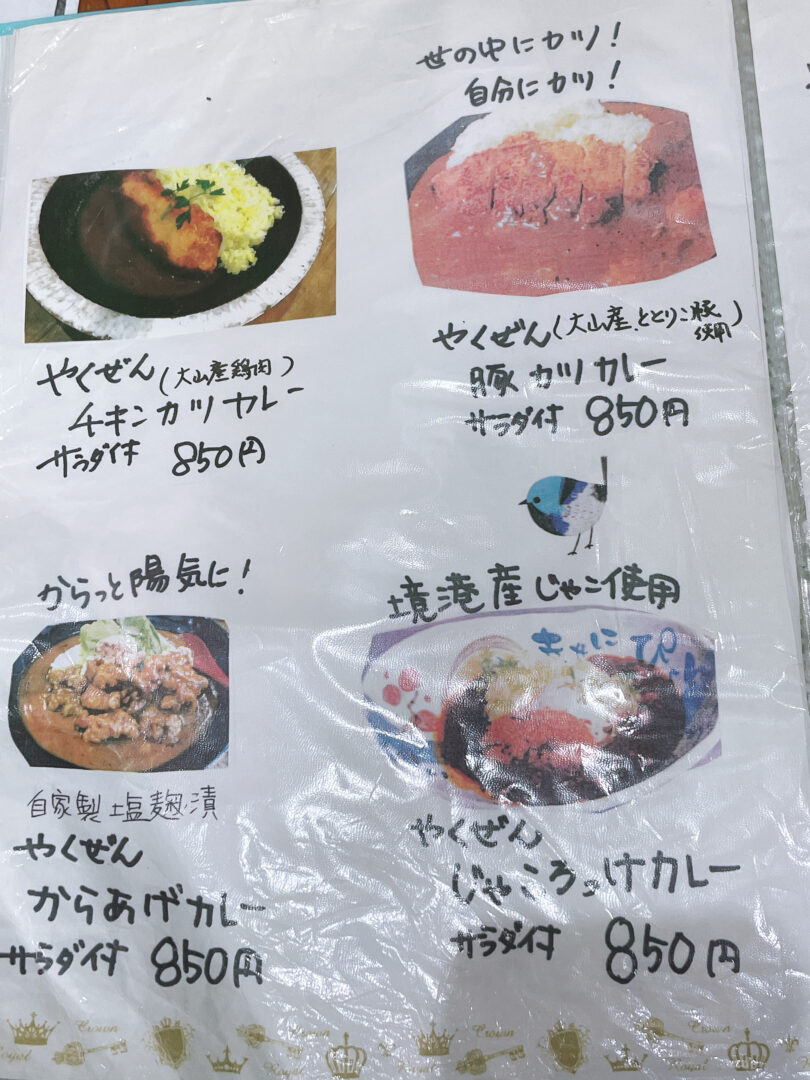 世の中にカツ!
自分にカツ!
やくぜん(大山産鶏肉)
チキンカツカレー
サラダ付 850円
やくぜん(大山産、ととりこ豚使用)
豚カツカレー
サラダ付 850円
からっと陽気に!
自家製塩麹漬
やくぜん
からあげカレー
サラダ付 850円
境港産じゃこ使用
やくぜん
じゃころっけカレー
サラダ付 850円
Crown
Royal
Crown
Royal
Crown
Royal